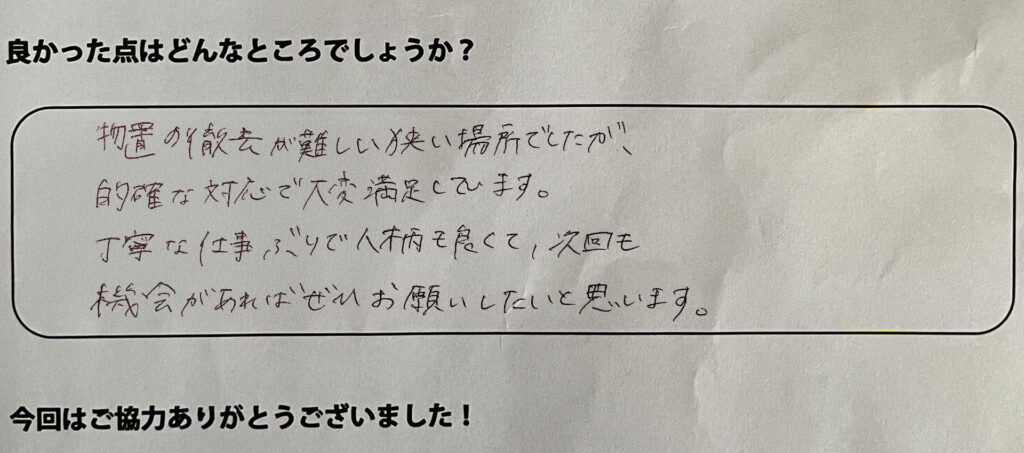 良かった点はどんなところでしょうか？
物置の撤去が難しい狭い場所でしたが、
的確な対応で大変満足しています。
丁寧な仕事ぶりで人柄も良くて、次回も
機会があればぜひお願いしたいと思います。
今回はご協力ありがとうございました！